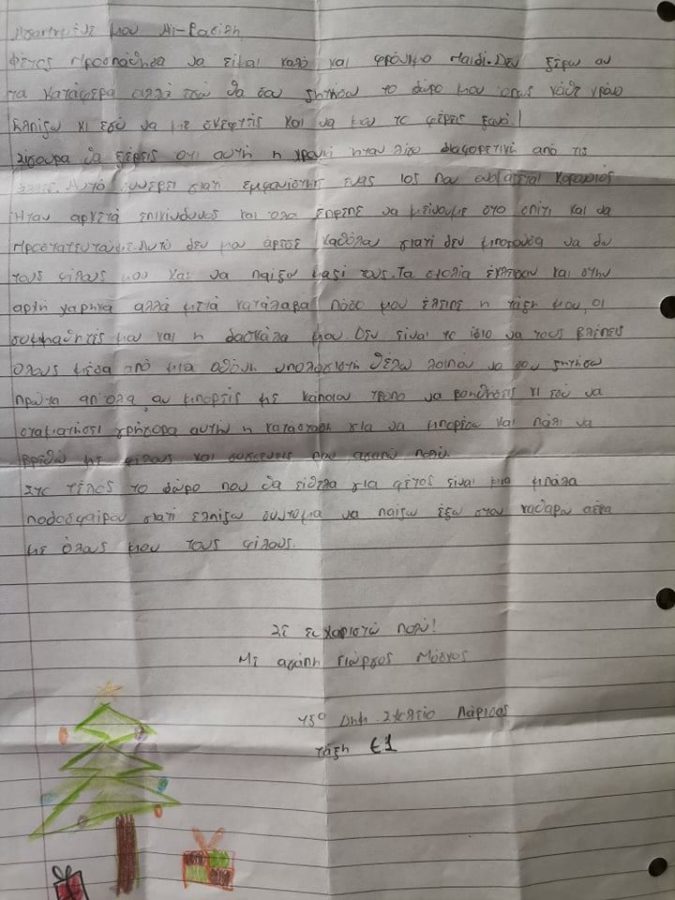 Αγαπημένε μου Αϊ-Βασίλη
Φέτος προσπάθησα να είμαι καλό και φρόνιμο παιδί. Δεν ξέρω αν
τα κατάφερα αλλά εγώ θα σου ζητήσω το δώρο μου όπως κάθε χρόνο
Ελπίζω κι εσύ να με σκεφτείς και να μου το φέρεις ξανά!
Σίγουρα θα ξέρεις ότι αυτή η χρονιά ήταν λίγο διαφορετική από τις
Αυτό συνέβει γιατί εμφανίστηκε ένας ιος που ονομάζεται Κορονοιός
Ήταν αρκετά επικίνδυνος και όλοι έπρεπε να μείνουμε στο σπίτι και να
προστατευτούμε. Αυτό δεν μου άρεσε καθόλου γιατί δεν μπορούσα να δω
τους φίλους μου και να παίξω μαζί τους. Τα σχολία έκλεισαν και στην
αρχή χάρηκα αλλά μετά κατάλαβα πόσο μου έλειπε η τάξη μου, οι
συμμαθητές μου και η δασκάλα μου. Δεν είναι το ίδιο να τους βλέπεις
όλους μέσα από μια οθόνη υπολογιστή θέλω λοιπόν να σου ζητήσω
πρώτα απ'όλα, αν μπορείς με κάποιον τρόπο να βοηθήσεις κι εσύ να
σταματήσει γρήγορα αυτήν η κατάσταση για να μπορέσω και πάλι να
βρεθώ με φίλους και συγγενείς που αγαπώ πολύ.
Στο τέλος το δώρο που θα είθελα για φέτος είναι μια μπάλα
ποδοσφαίρου γιατί ελπίζω σύντομα να παίξω έξω στον καθαρό αέρα
με όλους μου τους φίλους.
Σε ευχαριστώ πολύ!
Με αγάπη Γιώργος Μόσχος
45ο Δημ. Σχολείο Λάρισας
τάξη Ε1